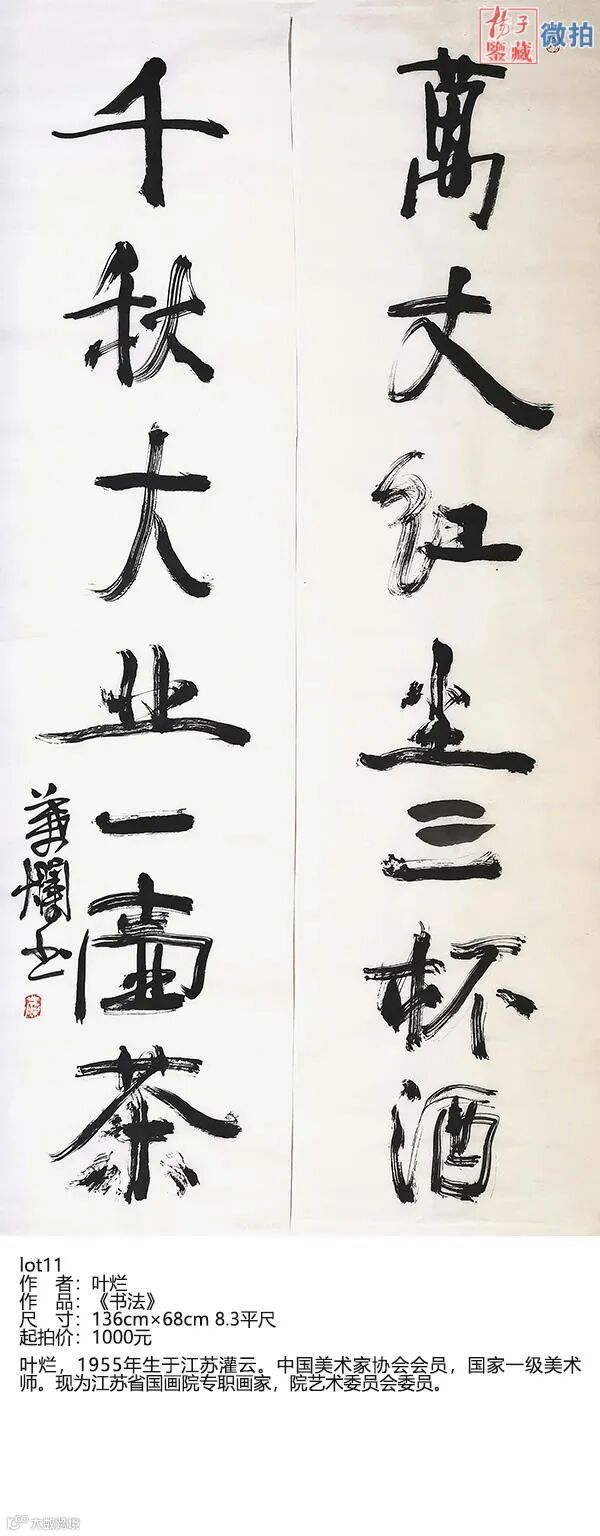 杨子
鉴藏
微拍
萬丈红尘三杯酒
千秋大业一壶茶
葉爛书
lot11
作 者：叶烂
作 品：《书法》
尺 寸：136cm×68cm 8.3平尺
起拍价：1000元
叶烂，1955年生于江苏灌云。中国美术家协会会员，国家一级美术
师。现为江苏省国画院专职画家，院艺术委员会委员。
大数跨境